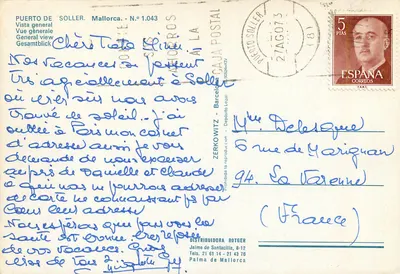 PUERTO DE SOLLER. Mallorca. - N.º 1.043
Vista general
Vue générale
General view
Gesamtblick
Nos vacances se passent
très agréablement à Soller
où hier soir nous avons
trouvé le soleil - j'ai
oublié à Paris mon carnet
d'adresses aussi je vous
demande de nous excuser
auprès de Danielle et Claude
à qui nous ne pourrons adresser
de carte ne connaissant pas par
cœur leur adresse
Nous espérons que pour vous la
santé est bonne
de vos vacances. Gros
PUERTO-SOLLER
27 AGO 73
5
PTAS
ESPAÑA
CORREOS
ZERKOWITZ - Barcelona
Mme Delesque
6 rue de Marignan
94. La Varenne
(France)
DISTRIBUIDORA ROTGER
Jaime de Santacilia, 8-12
Tels. 21 63 14 - 21 43 78
Palma de Mallorca